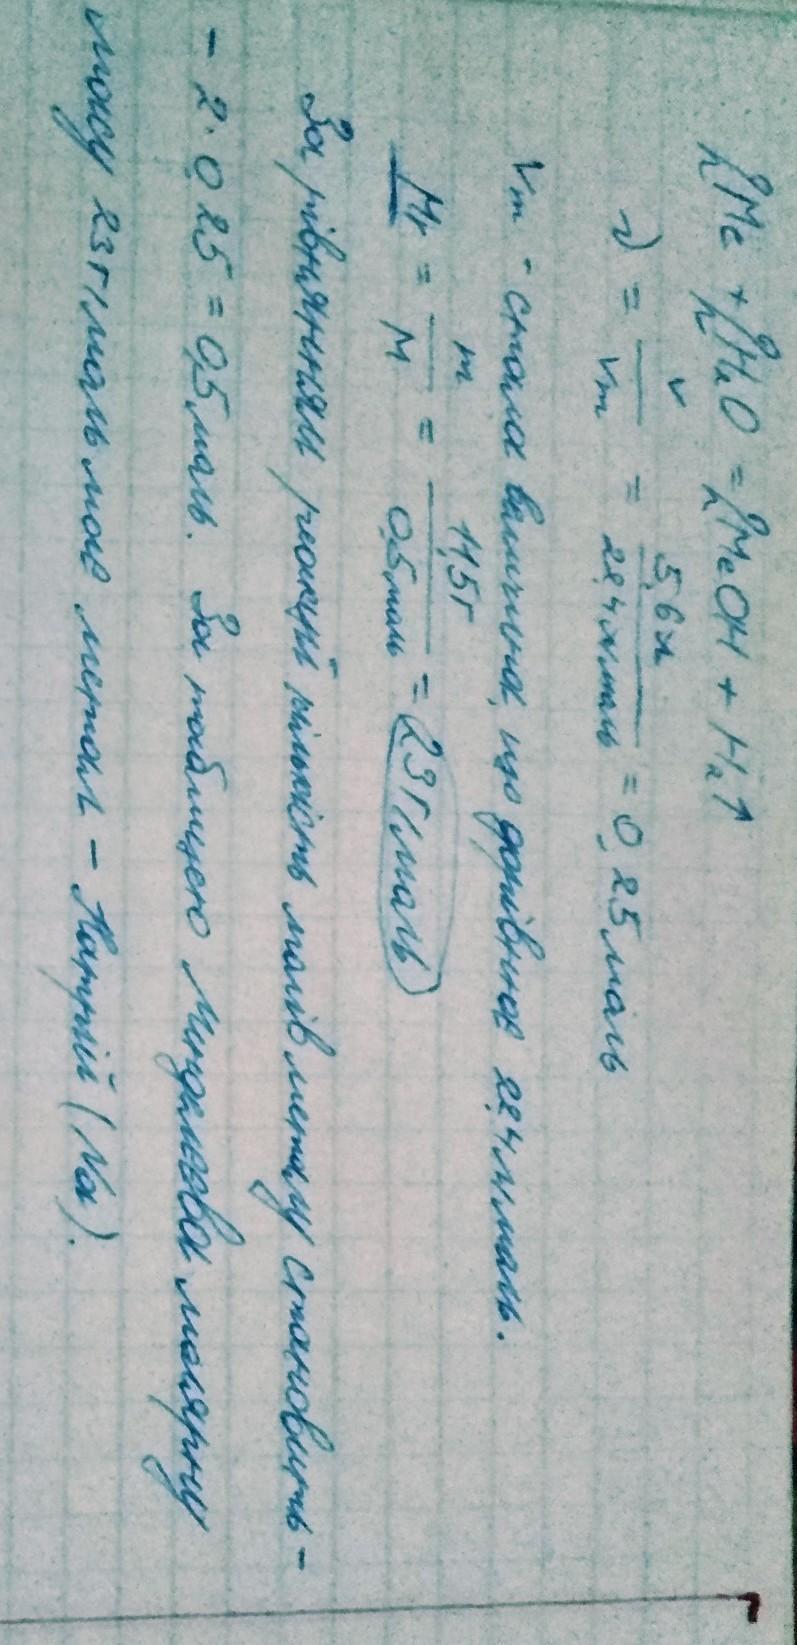 2Me + 2H₂O = 2MeOH + H₂↑
ν = V/Vm = 5,6л/22,4л/моль = 0,25моль
Vm - стала величина, що дорівнює 22,4л/моль.
Mr = m/M = 11,5г/0,5моль = 23г/моль
За рівнянням реакції кількість молів металу становить -
- 2·0,25 = 0,5моль. За таблицею Менделєєва молярну
масу 23г/моль має метал - Натрій (Na).